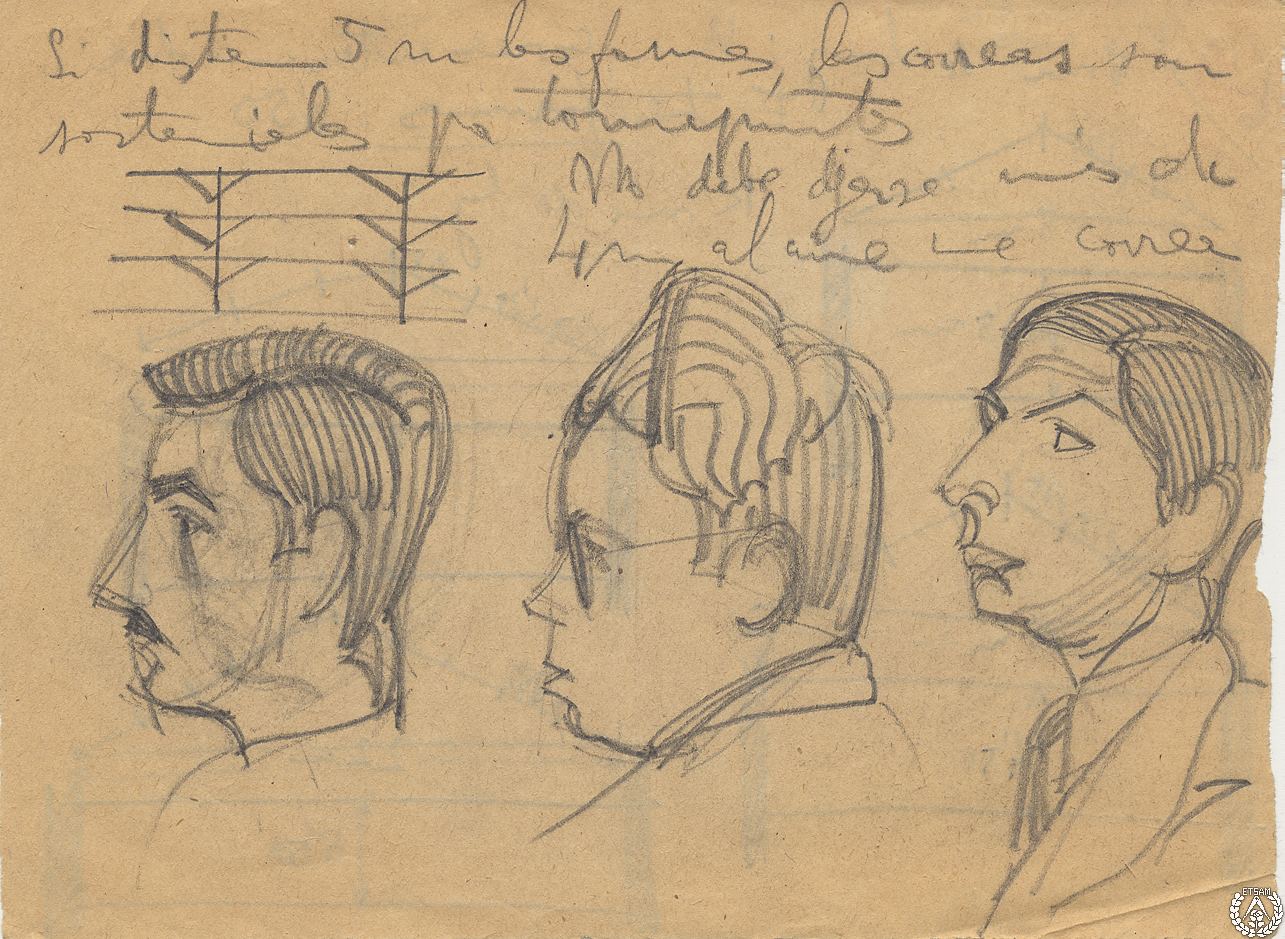 Si distan 5 m las formas, las correas son
sostenidas por tornapuntas
No debe dejarse más de
4 m al aire correa
ETSAM